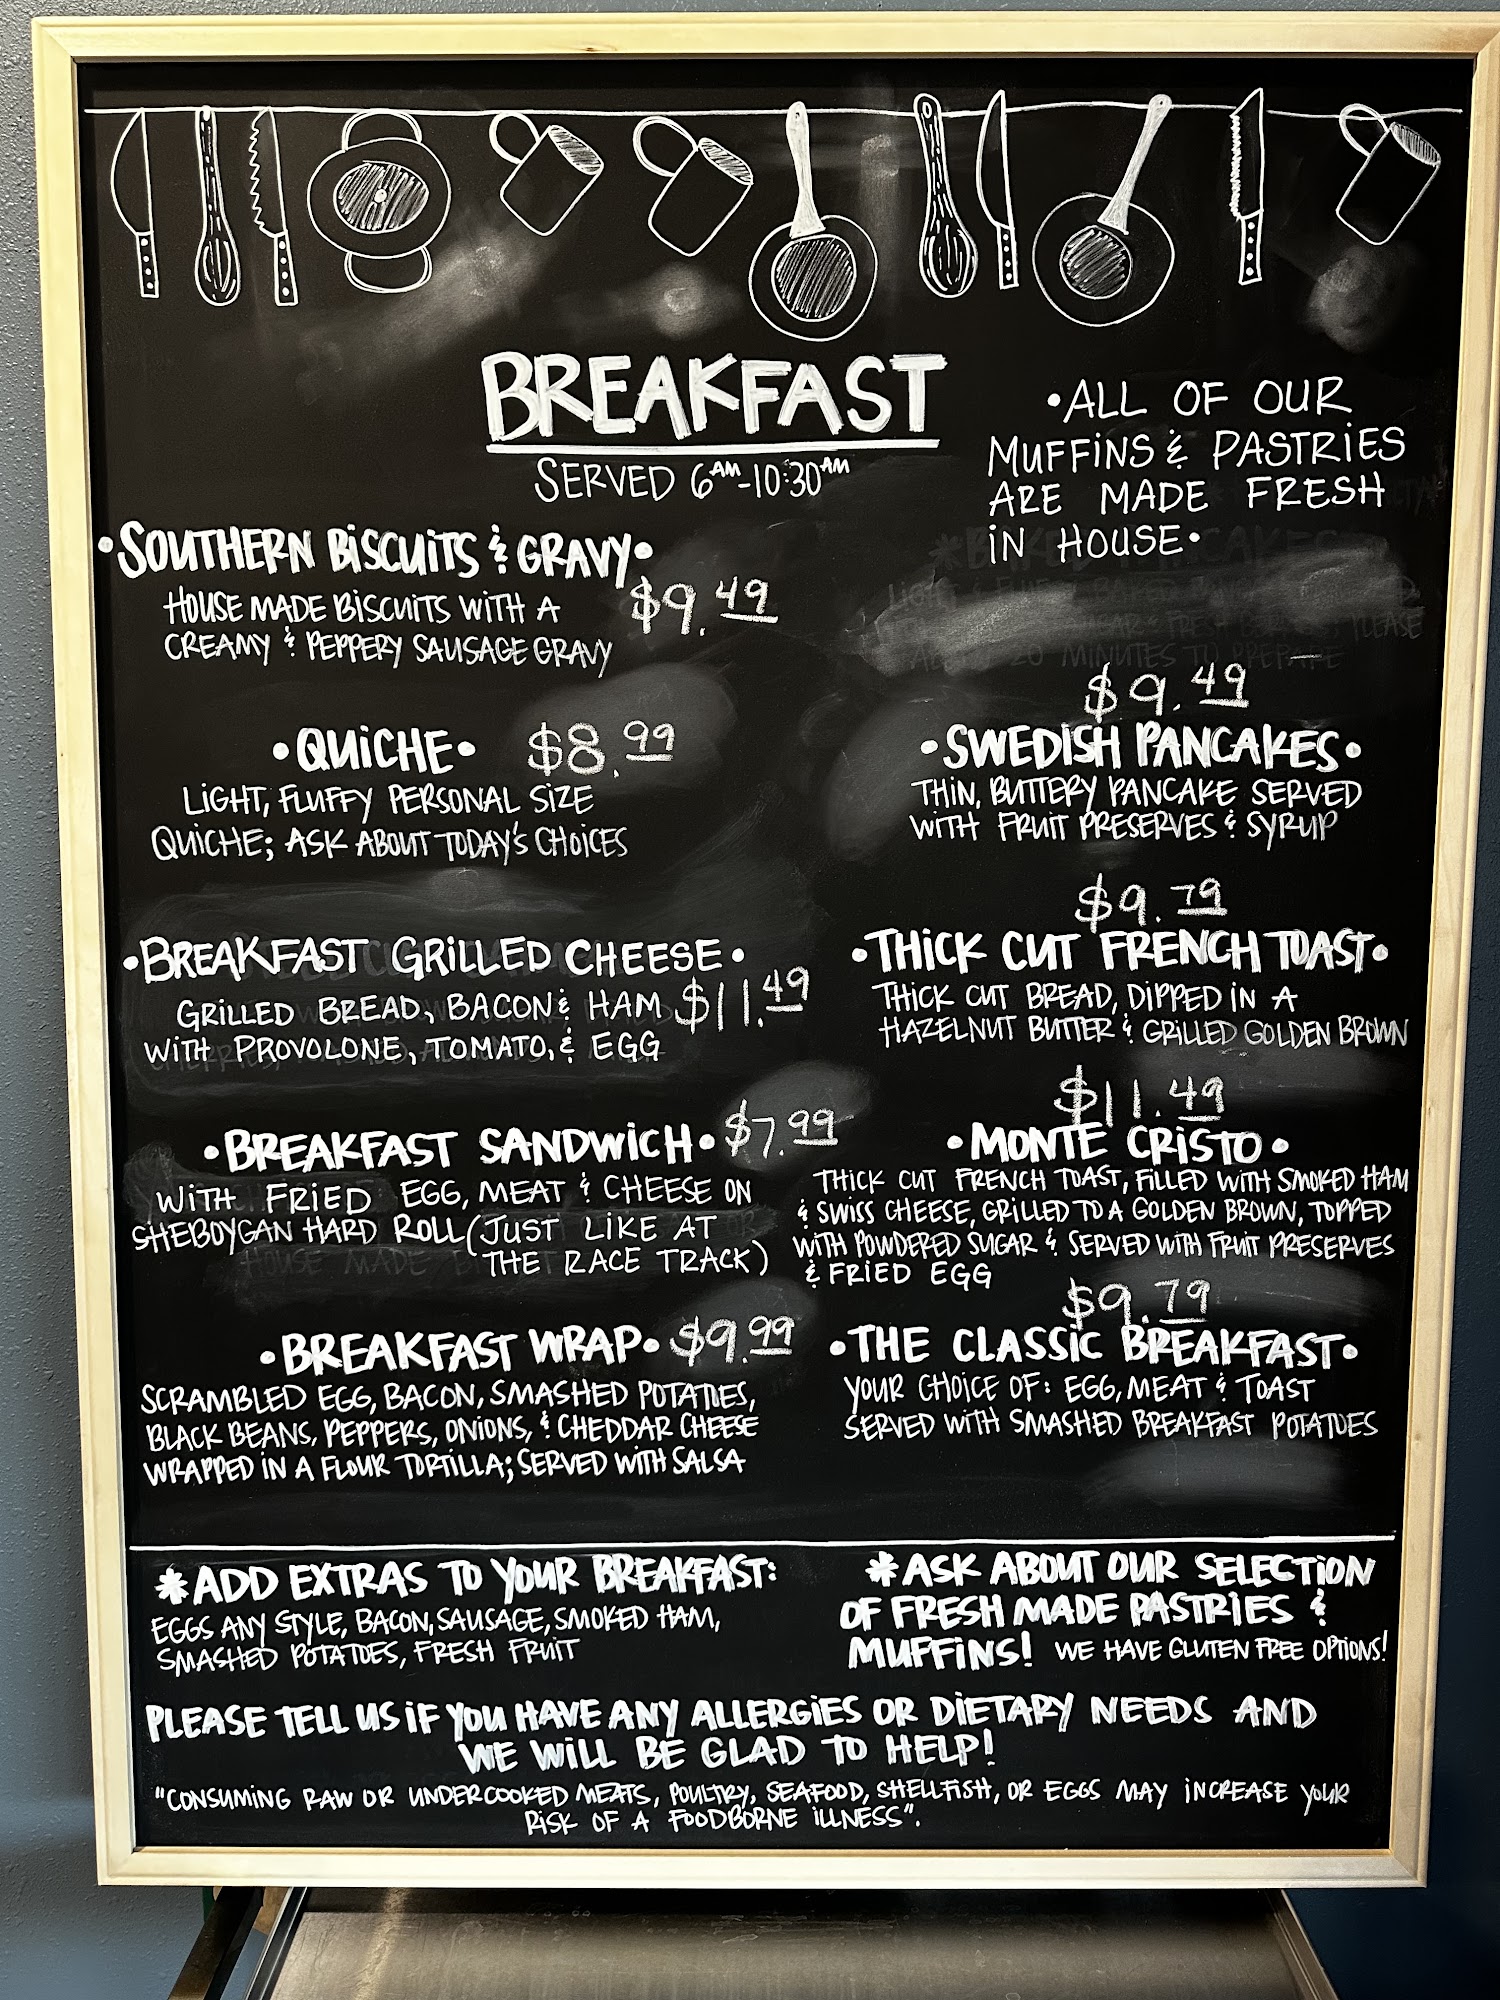 BREAKFAST
SERVED 6AM-10:30AM
•ALL OF OUR
MUFFINS & PASTRIES
ARE MADE FRESH
IN HOUSE•
•SOUTHERN BISCUITS & GRAVY•
$9.49
HOUSE MADE BISCUITS WITH A
CREAMY & PEPPERY SAUSAGE GRAVY
•QUICHE• $8.99
LIGHT, FLUFFY PERSONAL SIZE
QUICHE; ASK ABOUT TODAY'S CHOICES
•BREAKFAST GRILLED CHEESE•
GRILLED BREAD, BACON & HAM $11.49
WITH PROVOLONE, TOMATO, & EGG
•BREAKFAST SANDWICH• $7.99
WITH FRIED EGG, MEAT & CHEESE ON
SHEBOYGAN HARD ROLL (JUST LIKE AT
THE RACE TRACK)
•BREAKFAST WRAP• $9.99
SCRAMBLED EGG, BACON, SMASHED POTATOES,
BLACK BEANS, PEPPERS, ONIONS, & CHEDDAR CHEESE
WRAPPED IN A FLOUR TORTILLA; SERVED WITH SALSA
PLEASE
20 MINUTES TO PREPARE
$9.49
•SWEDISH PANCAKES•
THIN, BUTTERY PANCAKE SERVED
WITH FRUIT PRESERVES & SYRUP
$9.79
•THICK CUT FRENCH TOAST•
THICK CUT BREAD, DIPPED IN A
HAZELNUT BUTTER & GRILLED GOLDEN BROWN
$11.49
•MONTE CRISTO•
THICK CUT FRENCH TOAST, FILLED WITH SMOKED HAM
& SWISS CHEESE, GRILLED TO A GOLDEN BROWN, TOPPED
WITH POWDERED SUGAR & SERVED WITH FRUIT PRESERVES
& FRIED EGG
$9.79
•THE CLASSIC BREAKFAST•
YOUR CHOICE OF: EGG, MEAT & TOAST
SERVED WITH SMASHED BREAKFAST POTATOES
*ADD EXTRAS TO YOUR BREAKFAST:
EGGS ANY STYLE, BACON, SAUSAGE, SMOKED HAM,
SMASHED POTATOES, FRESH FRUIT
*ASK ABOUT OUR SELECTION
OF FRESH MADE PASTRIES &
MUFFINS! WE HAVE GLUTEN FREE OPTIONS!
PLEASE TELL US IF YOU HAVE ANY ALLERGIES OR DIETARY NEEDS AND
WE WILL BE GLAD TO HELP!
"CONSUMING RAW OR UNDERCOOKED MEATS, POULTRY, SEAFOOD, SHELLFISH, OR EGGS MAY INCREASE YOUR
RISK OF A FOODBORNE ILLNESS".